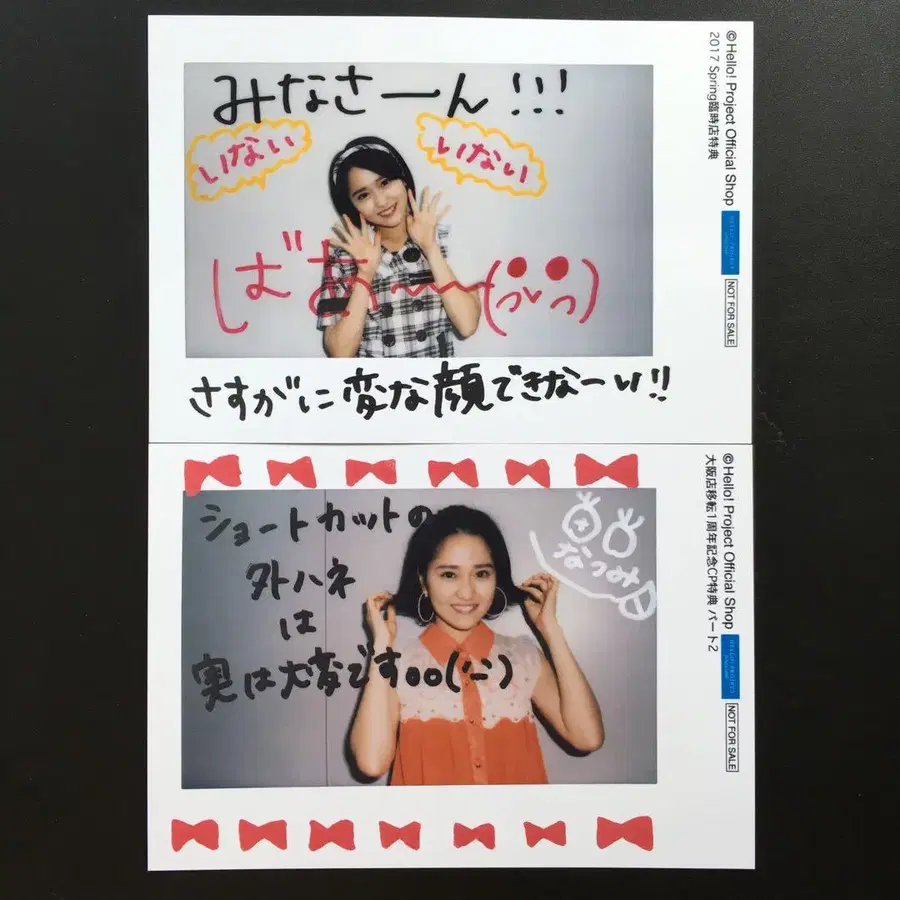 みなさーん!!!
いない
いない
ばあ〜〜
さすがに変な顔できなーい!!
© Hello! Project Official Shop
2017 Spring臨時店特典
HELLO! PROJECT
NOT FOR SALE
ショートカットの
外ハネ
は
実は大変です
なつみ
© Hello! Project Official Shop
大阪店移転1周年記念CP特典 パート2
HELLO! PROJECT
NOT FOR SALE